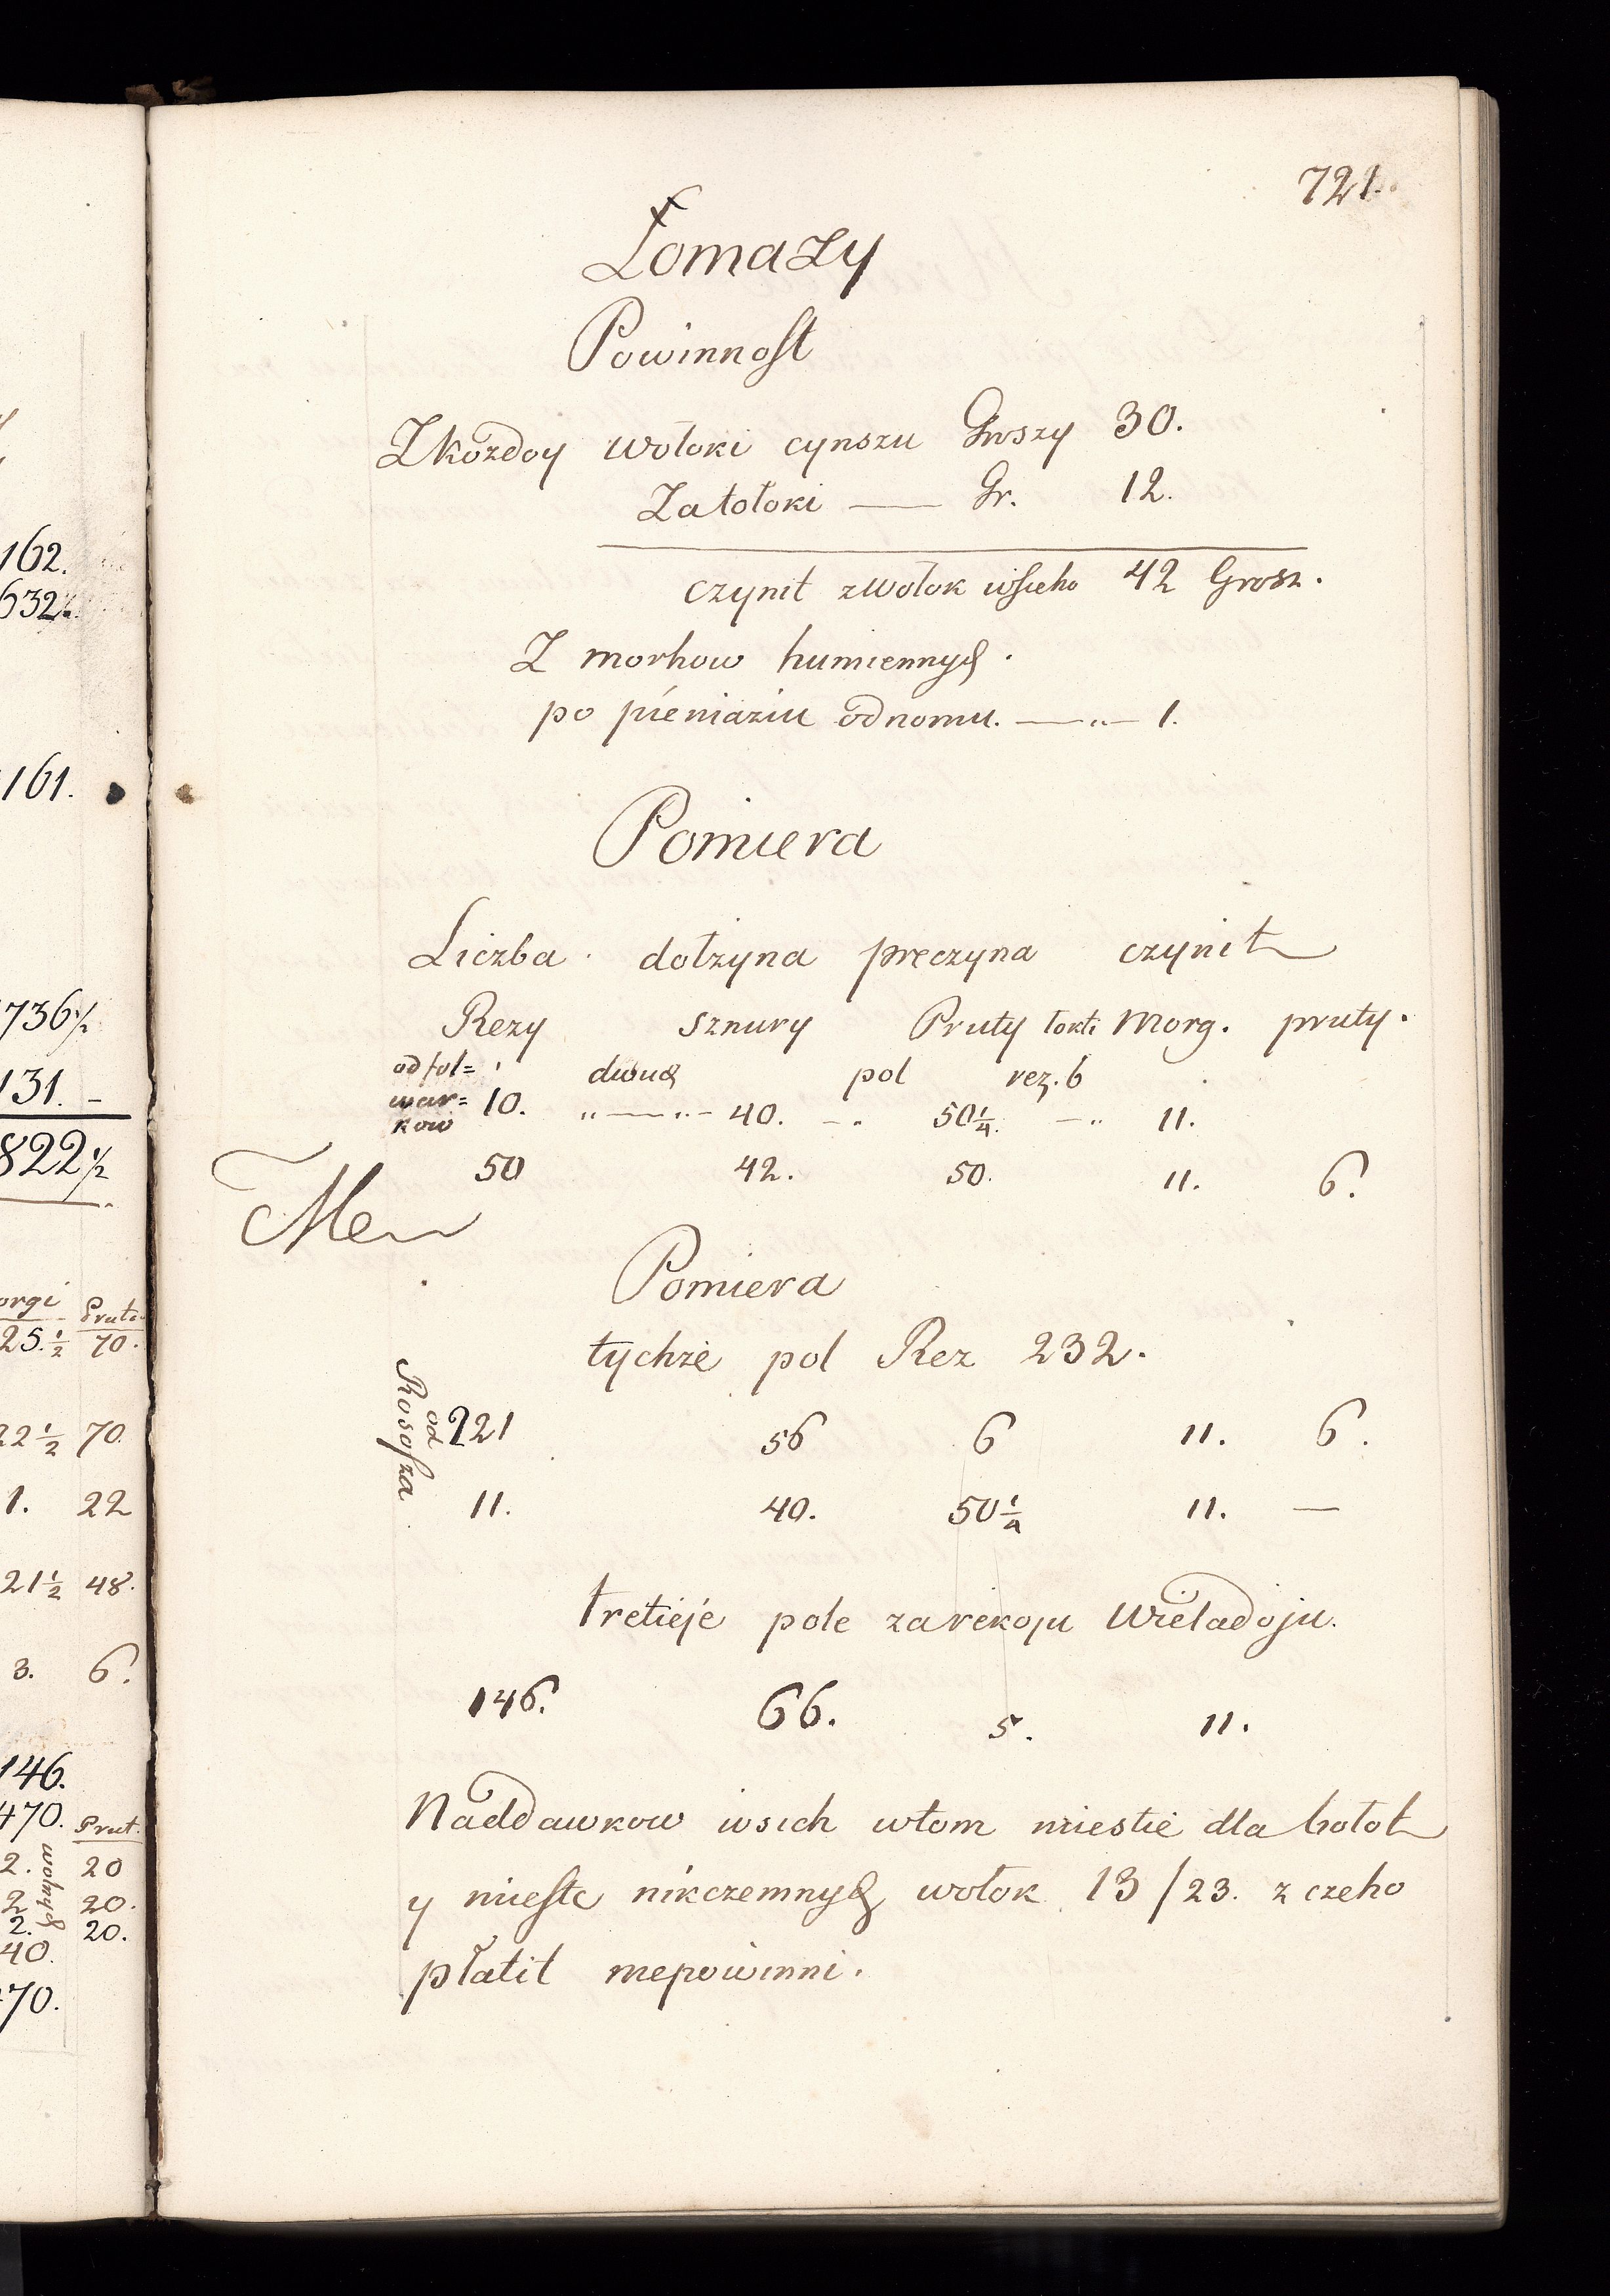 162.
632.
161.
736½
131. –
822½
orgi Pruto
25.½ 70.
22½ 70.
1. 22
21½ 48.
3. 6.
146.
470. Prut.
2. 20
2 20.
2. 20.
wolnych
40.
70.
721.
Łomazy
Powinnost
Zkożdoy wołoki cynszu Groszy 30.
Zatołoki — Gr. 12.
czynit zwołok wsieho 42 Grosz.
Z morhow humiennych.
po pieniaziu odnomu. — „ — 1.
Pomiera
Liczba dołzyna preczyna czynit
Rezy sznury Pruty łokti Morg. pruty.
od fol= dwuch pol rez. 6
war= 10. „ — „ – 40. – . 50¼. – „ 11.
kow
50 42. 50. 11. 6.
Pomiera
tychże pol Rez 232.
od Rososza
221 56 6 11. 6.
11. 40. 50¼ 11. —
tretieje pole zarekoju Wieladoju.
146. 66. 5. 11.
Naddawkow wsich wtom miestie dla bołot
y mieste nikczemnych wołok 13/23. z czeho
płatit niepowinni.